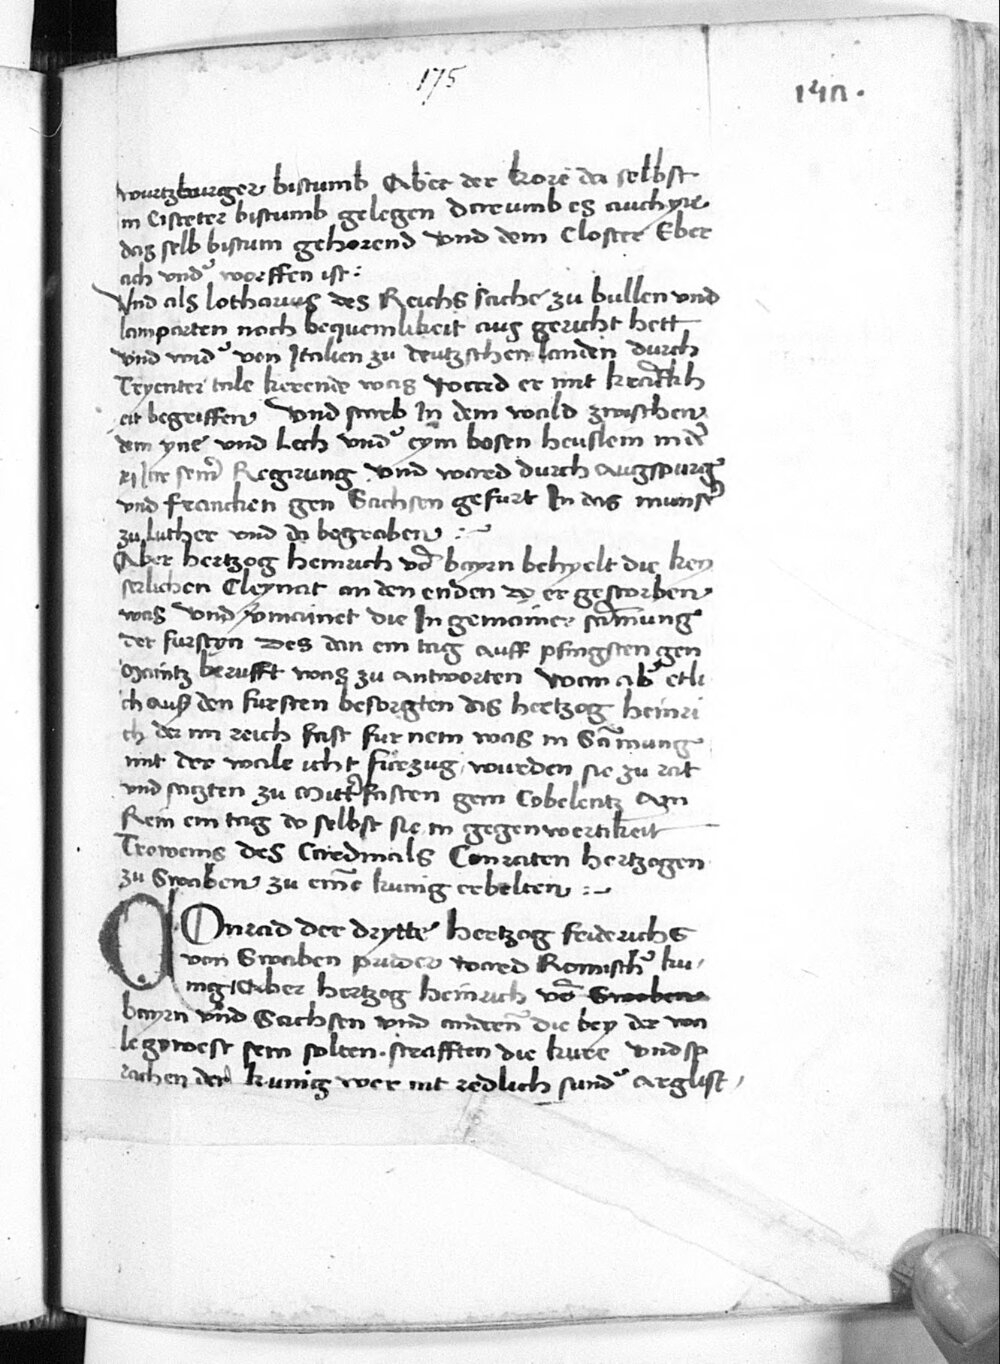 175
wurtzburger bistumb Aber der kore da selbst
in Cisteter bistumb gelegen darumb es auch yre
das selb bistum gehorend vnd dem Closter Eber
ach vnd worffen ist :
Vnd als lotharius des Reichs sache zu bullen vnd
lamparten noch bequemlikeit aus gericht hett
vnd wid von Italien zu deutzschen landen durch
Tryenter tale kerende was ward er mit kranckh
eit begriffen Vnd starb In dem wald zwischen
dem yne vnd Lech vnd eym bosen heuslein in
Iar seinr Regirung vnd ward durch Augspurg
vnd francken gen Sachsen gefurt In das munster
zu luther vnd do begraben :~
Aber hertzog heinrich vo bayrn behyelt die key
serlichen Cleynat an den enden do er gestorben
was vnd vmainet die In gemainer samung
der furstyn Des dan ein tag auff pfingsten gen
Maintz berufft was zu antworten wan ab etli
ch aus den fursten besorgten das hertzog heinri
ch der im reich fast fur nem was in Samung
mit der wale icht furzug wurden sie zu rat
vnd saczten zu Mittfasten gein Cobelentz Am
Rein ein tag do selbst sie in gegenwertikeit
Trowems des Cardinals Conraten hertzogen
zu Swaben zu eine kunig erbelten :~
Conrad der drytte hertzog friderichs
von Swaben pruder ward Romisch ku
nig Aber hertzog heinrich vo Swaben
bayrn vnd Sachsen vnd andern die bey der wa
le gewest sein solten strafften die kure vnd sp
rachen der kunig wer nit redlich sund arglist